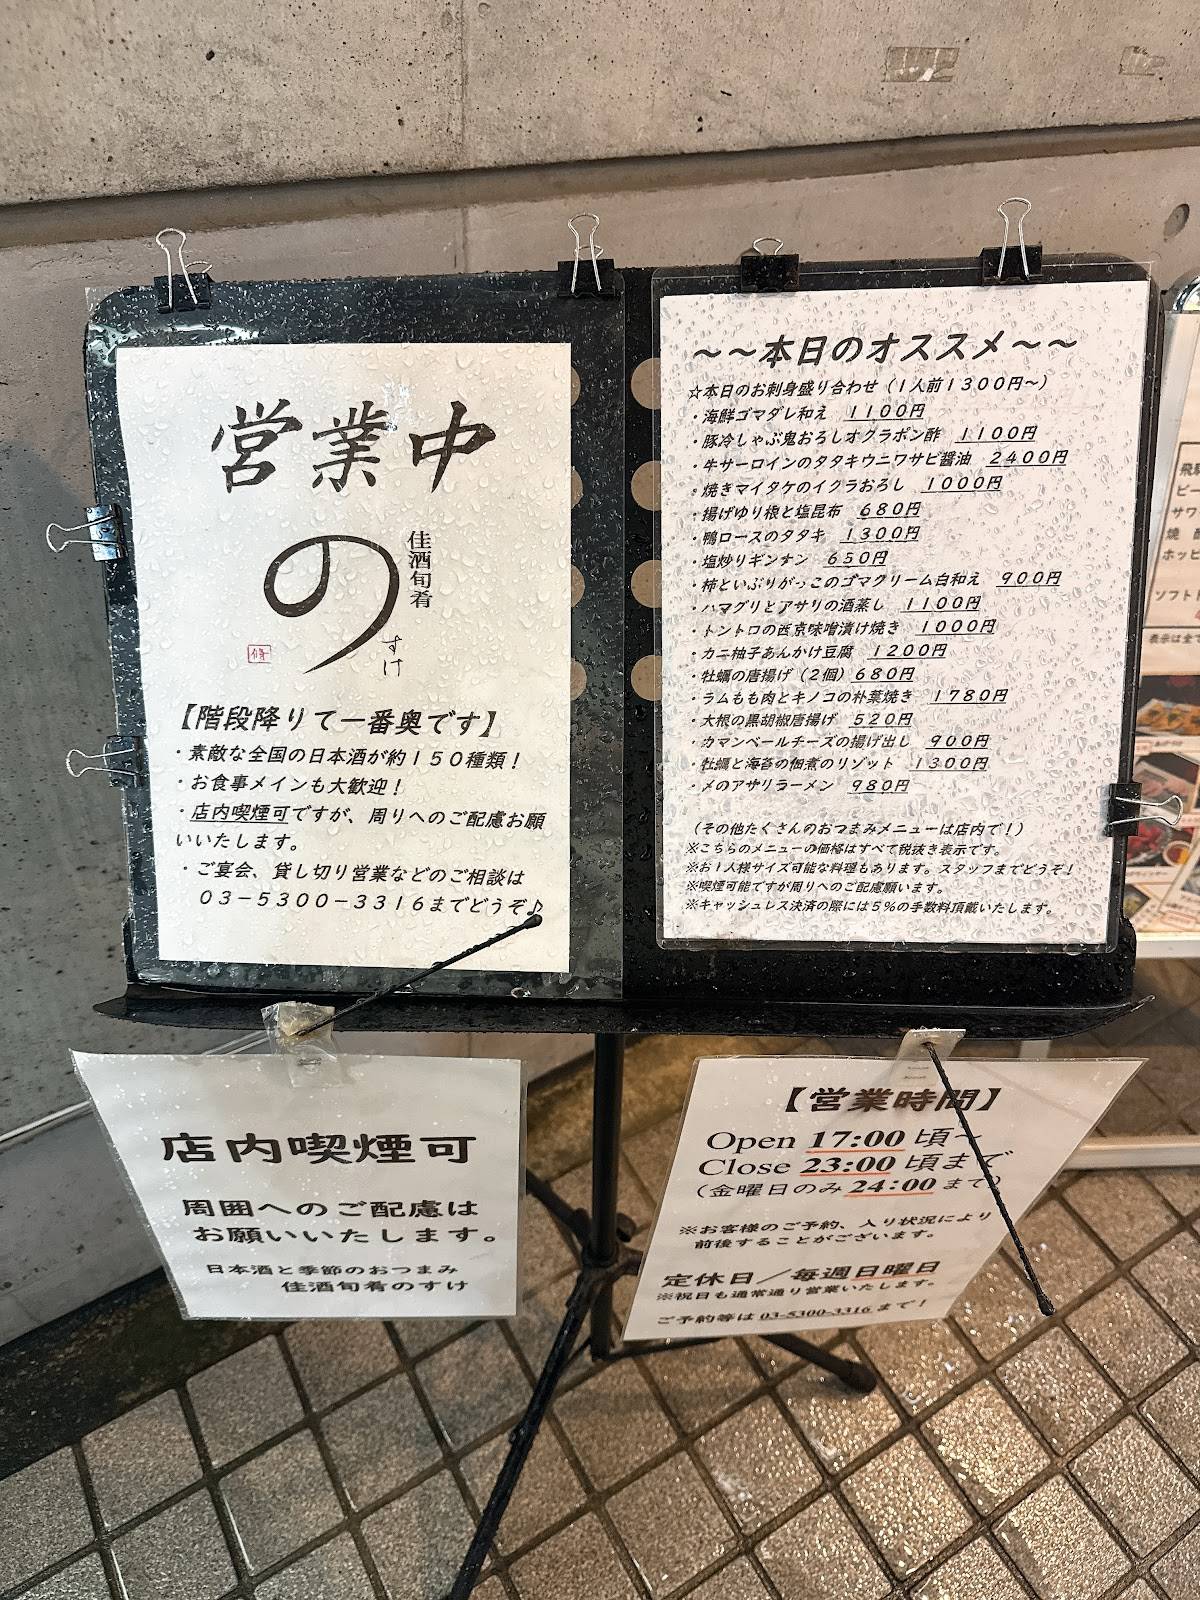 営業中
佳酒旬肴
のすけ
【階段降りて一番奥です】
・素敵な全国の日本酒が約150種類！
・お食事メインも大歓迎！
・店内喫煙可ですが、周りへのご配慮お願
いいたします。
・ご宴会、貸し切り営業などのご相談は
03-5300-3316までどうぞ♪
～～本日のオススメ～～
☆本日のお刺身盛り合わせ（1人前1300円～）
・海鮮ゴマダレ和え 1100円
・豚冷しゃぶ鬼おろしオクラポン酢 1100円
・牛サーロインのタタキウニワサビ醤油 2400円
・焼きマイタケのイクラおろし 1000円
・揚げゆり根と塩昆布 680円
・鴨ロースのタタキ 1300円
・塩炒りギンナン 650円
・柿といぶりがっこのゴマクリーム白和え 900円
・ハマグリとアサリの酒蒸し 1100円
・トントロの西京味噌漬け焼き 1000円
・カニ柚子あんかけ豆腐 1200円
・牡蠣の唐揚げ（2個）680円
・ラムもも肉とキノコの朴葉焼き 1780円
・大根の黒胡椒唐揚げ 520円
・カマンベールチーズの揚げ出し 900円
・牡蠣と海苔の佃煮のリゾット 1300円
・〆のアサリラーメン 980円
（その他たくさんのおつまみメニューは店内で！）
※こちらのメニューの価格はすべて税抜き表示です。
※お1人様サイズ可能な料理もあります。スタッフまでどうぞ！
※喫煙可能ですが周りへのご配慮願います。
※キャッシュレス決済の際には5%の手数料頂戴いたします。
店内喫煙可
周囲へのご配慮は
お願いいたします。
日本酒と季節のおつまみ
佳酒旬肴のすけ
【営業時間】
Open 17:00 頃～
Close 23:00 頃まで
（金曜日のみ 24:00 まで）
※お客様のご予約、入り状況により
前後することがございます。
定休日／毎週日曜日
※祝日も通常通り営業いたします。
ご予約等は 03-5300-3316 まで！
ソフト
表示は全て